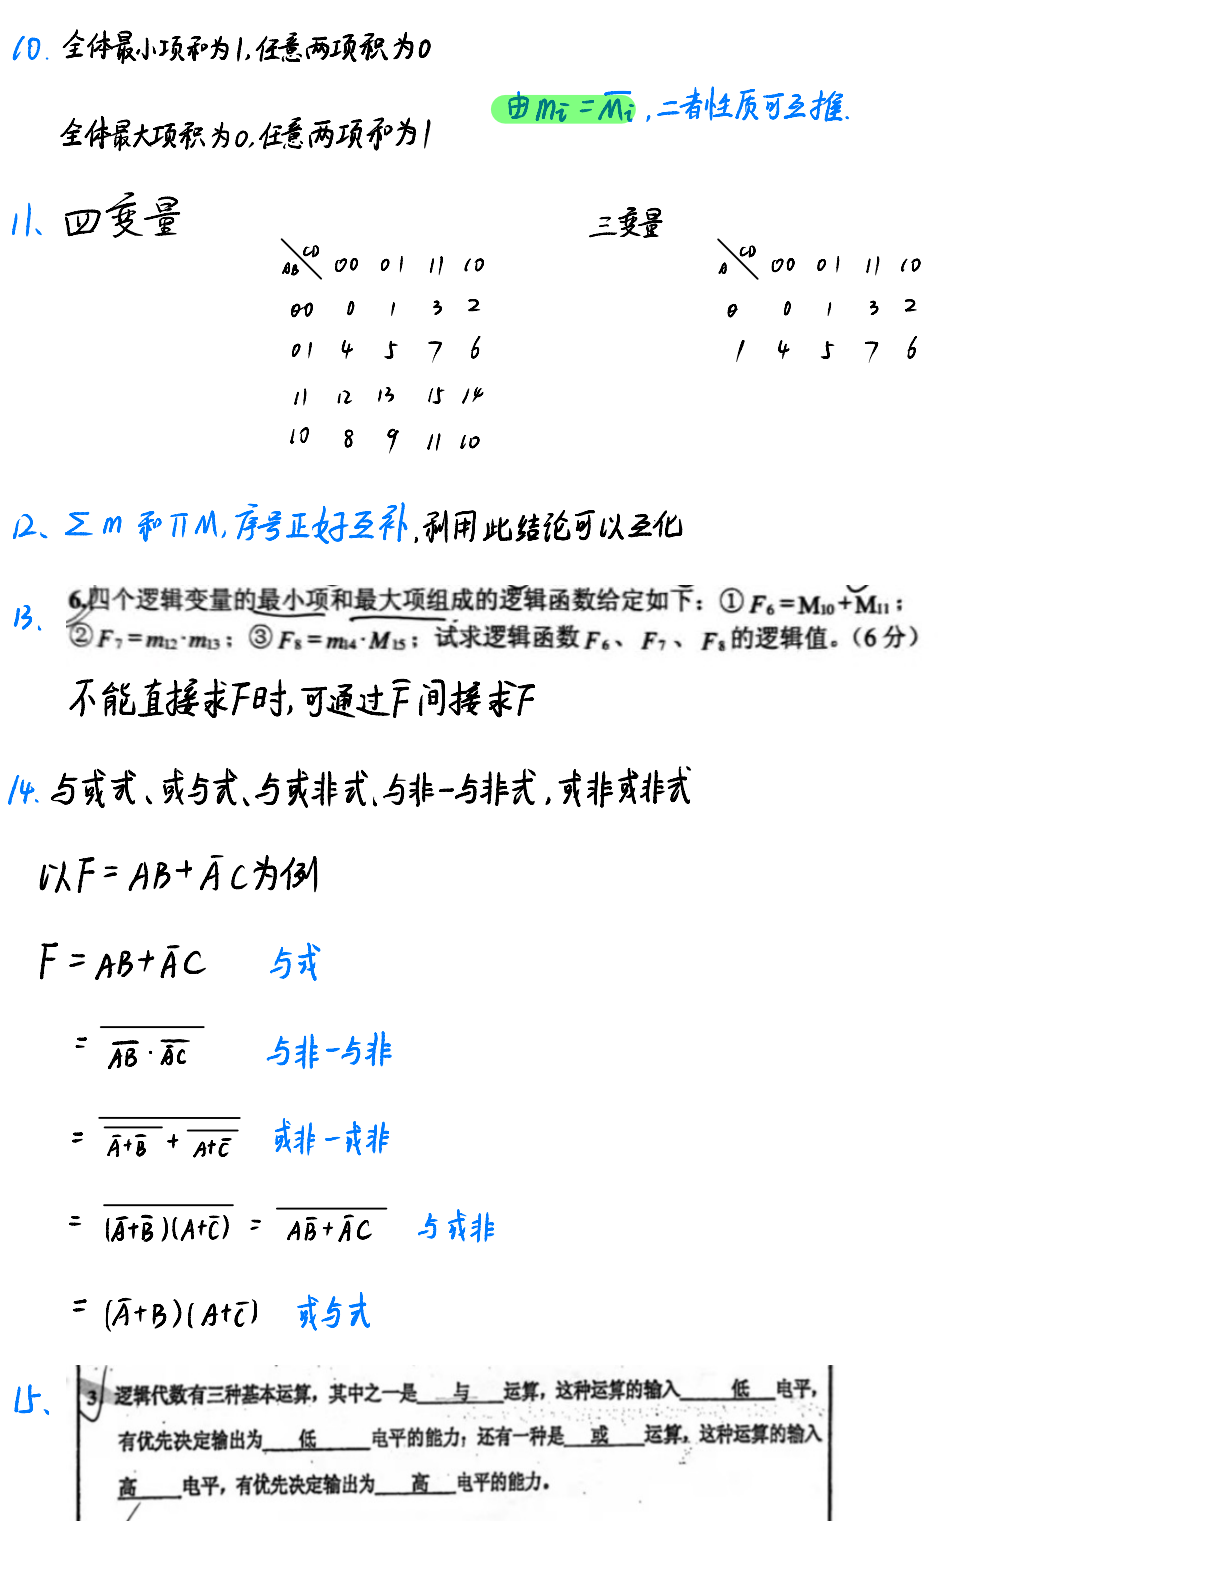 10. 全体最小项和为1,任意两项积为0
由 mi = M̅i ,二者性质可互推.
全体最大项积为0,任意两项和为1
11、四变量 三变量
AB\CD 00 01 11 10
00 0 1 3 2
01 4 5 7 6
11 12 13 15 14
10 8 9 11 10
A\CD 00 01 11 10
0 0 1 3 2
1 4 5 7 6
12、Σm 和 ΠM,序号正好互补,利用此结论可以互化
13、 6.四个逻辑变量的最小项和最大项组成的逻辑函数给定如下：① F₆=M₁₀+M₁₁；
② F₇=m₁₂·m₁₃；③ F₈=m₁₄·M₁₅；试求逻辑函数 F₆、F₇、F₈的逻辑值。（6 分）
不能直接求F时,可通过F̅间接求F
14. 与或式、或与式、与或非式、与非-与非式,或非或非式
以F = AB + A̅C为例
F = AB + A̅C 与或
= \overline{\overline{AB} · \overline{A̅C}} 与非-与非
= \overline{\overline{\overline{A̅+B̅} + \overline{A+C̅}}} 或非-或非
= \overline{(A̅+B̅)(A+C̅)} = \overline{AB̅ + A̅C} 与或非
= (A̅+B)(A+C̅) 或与式
15、 3. 逻辑代数有三种基本运算，其中之一是 与 运算，这种运算的输入 低 电平，
有优先决定输出为 低 电平的能力；还有一种是 或 运算，这种运算的输入
高 电平，有优先决定输出为 高 电平的能力。